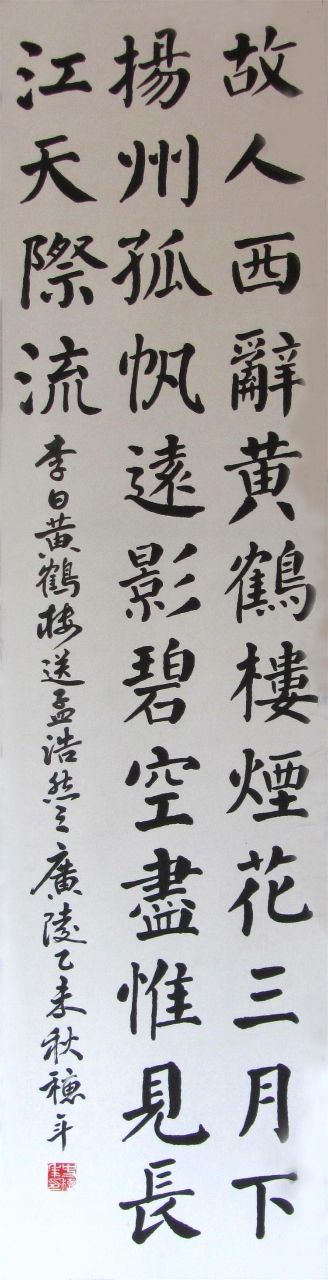 故人西辭黃鶴樓煙花三月下
揚州孤帆遠影碧空盡惟見長
江天際流
李白黃鶴樓送孟浩然之廣陵乙未秋穗年